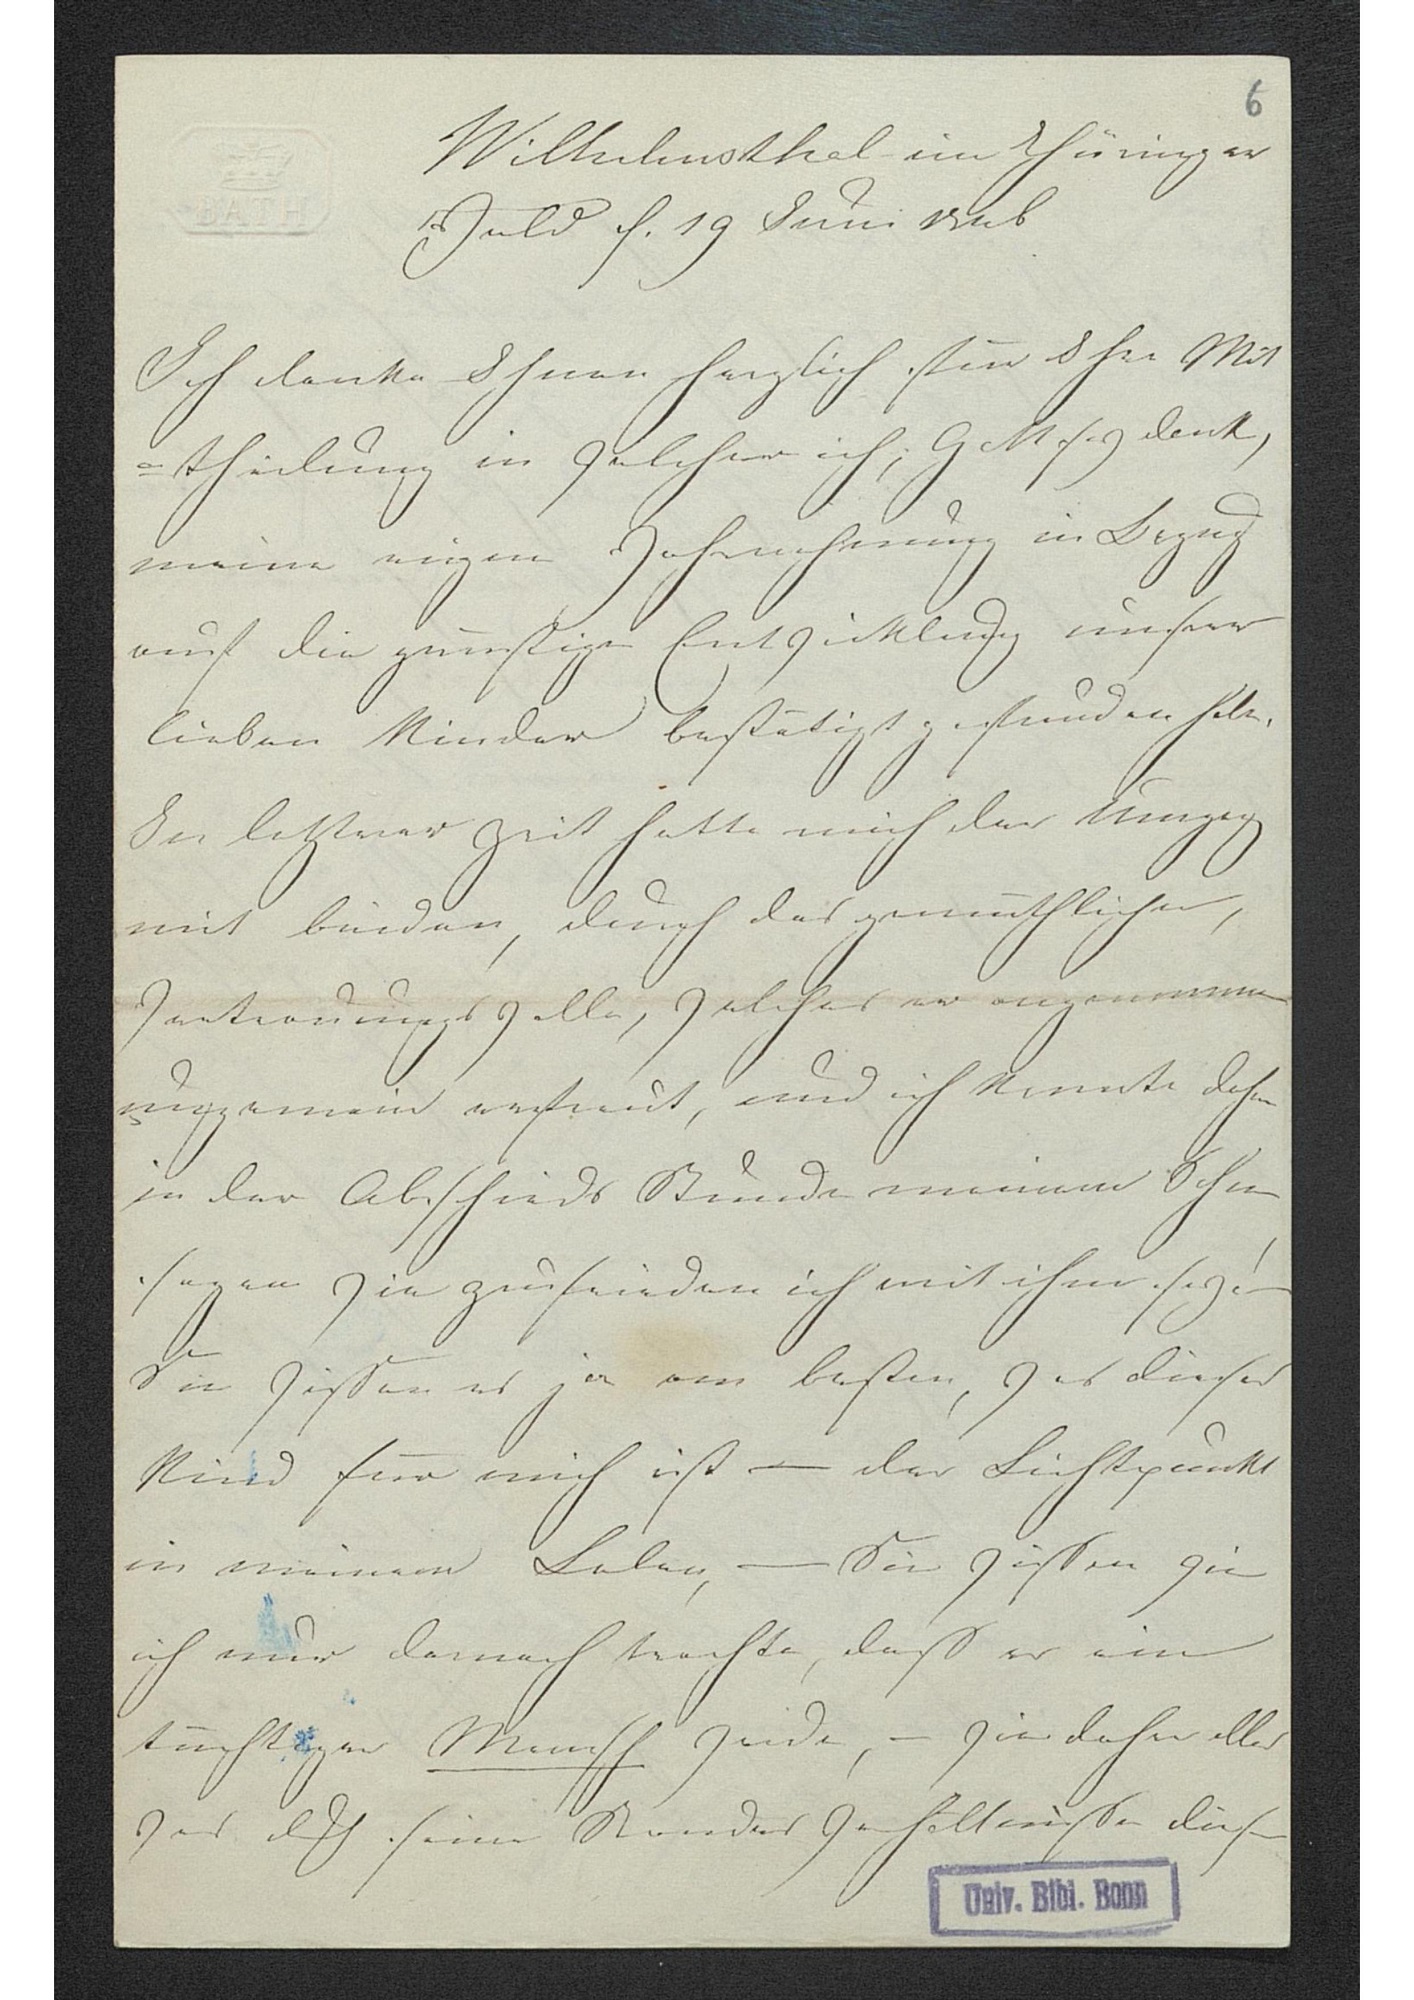 6
BATH
Wilhelmsthal im Thüringer
Wald d. 19 Juni 1846
Ich danke Ihnen herzlich für Ihre Mit
=theilung in welcher ich, Gott sey dank,
meine eigene Wahrnehmung in Bezug
auf die günstige Entwicklung unserer
lieben Kinder bestätigt gefunden habe.
In letzter Zeit hatte mich der Umgang
mit beiden, durch das gemüthliche,
vertrauungsvolle, welches er angenommen
ungemein erfreut, und ich konnte daher
in der Abschieds Stunde meinem Sohne
sagen wie zufrieden ich mit ihm sey! –
Sie wissen es ja am besten, was dieses
Kind für mich ist — der Lichtpunkt
in meinem Leben, — Sie wissen wie
ich nur darnach trachte, dass er ein
tüchtiger Mensch werde, – wie daher alles
was seine Standes Verhältnisse
Univ. Bibl. Bonn